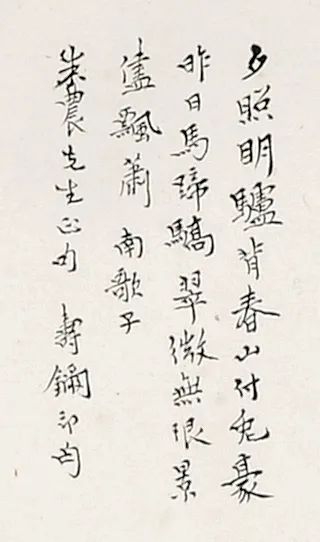 夕照明驢背春山付兔豪
昨日馬蹄驕翠微無限景
儘飄蕭 南歌子
農先生正 壽鑈印